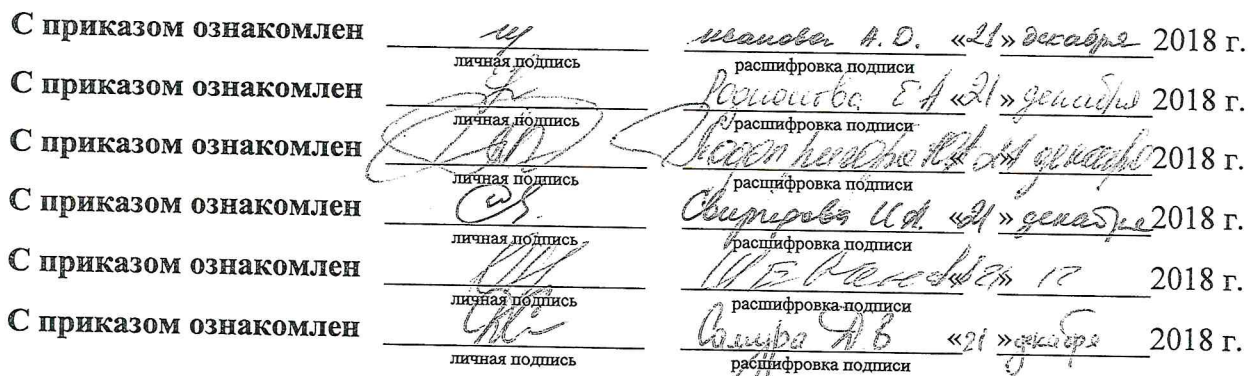 С приказом ознакомлен иванова А.О. «21» декабря 2018 г.
личная подпись расшифровка подписи
С приказом ознакомлен Е А «21» декабря 2018 г.
личная подпись расшифровка подписи
С приказом ознакомлен «21» декабря 2018 г.
личная подпись расшифровка подписи
С приказом ознакомлен Свиридова И.А. «21» декабря 2018 г.
личная подпись расшифровка подписи
С приказом ознакомлен «21» 12 2018 г.
личная подпись расшифровка подписи
С приказом ознакомлен Самура А В «21» декабря 2018 г.
личная подпись расшифровка подписи